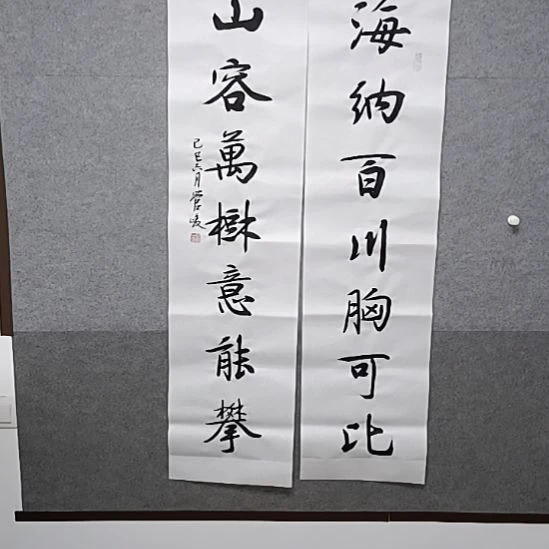 海纳百川胸可比
山容萬樹意能攀
己巳六月